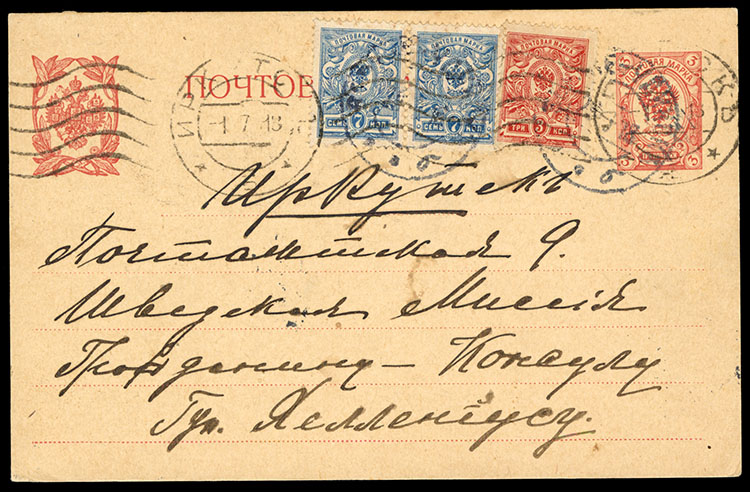 ПОЧТОВ
ПОЧТОВАЯ МАРКА
7 7
СЕМЬ КОП.
ПОЧТОВАЯ МАРКА
7 7
СЕМЬ КОП.
ПОЧТОВАЯ МАРКА
3 3
ТРИ КОП.
3 3
ПОЧТОВАЯ МАРКА
3 3
-1 7 18
Иркутскъ
Почтамтская 9.
Шведская Миссія
Гражданину - Консулу
Гул. Яелленіусу.